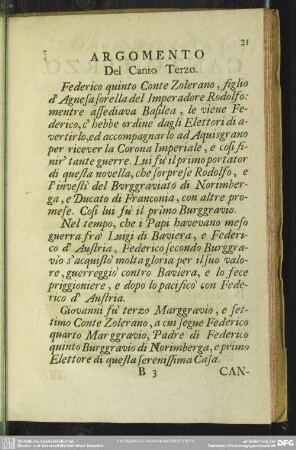 21
ARGOMENTO
Del Canto Terzo.
Federico quinto Conte Zolerano, figlio
d'Agnesa sorella del Imperadore Rodolfo:
mentre assediava Basilea, le viene Fe-
derico, c' hebbe ordine dagli Elettori di a-
vertirlo, ed accompagnarlo ad Aquisgrano
per ricever la Corona Imperiale, e così fi-
nir' tante guerre. Lui fu' il primo portator
di questa novella, che sorprese Rodolfo, e
l'investì del Burggraviato di Norimber-
ga, e Ducato di Franconia, con altre pro-
mese. Così lui fu il primo Burggravio.
Nel tempo, che i Papi havevano meso
guerra frà Luigi di Baviera, e Federi-
co d' Austria, Federico secondo Burggra-
vio s'acquistò molta gloria per il suo valo-
re, guerreggiò contro Baviera, e lo fece
priggioniere, e dopo lo pacificò con Fede-
rico d' Austria.
Giovanni fù terzo Marggravio, e set-
timo Conte Zolerano, a cui segue Federico
quarto Marggravio, Padre di Federico
quinto Burggravio di Norimberga, e primo
Elettore di questa serenissima Casa.
B 3 CAN-